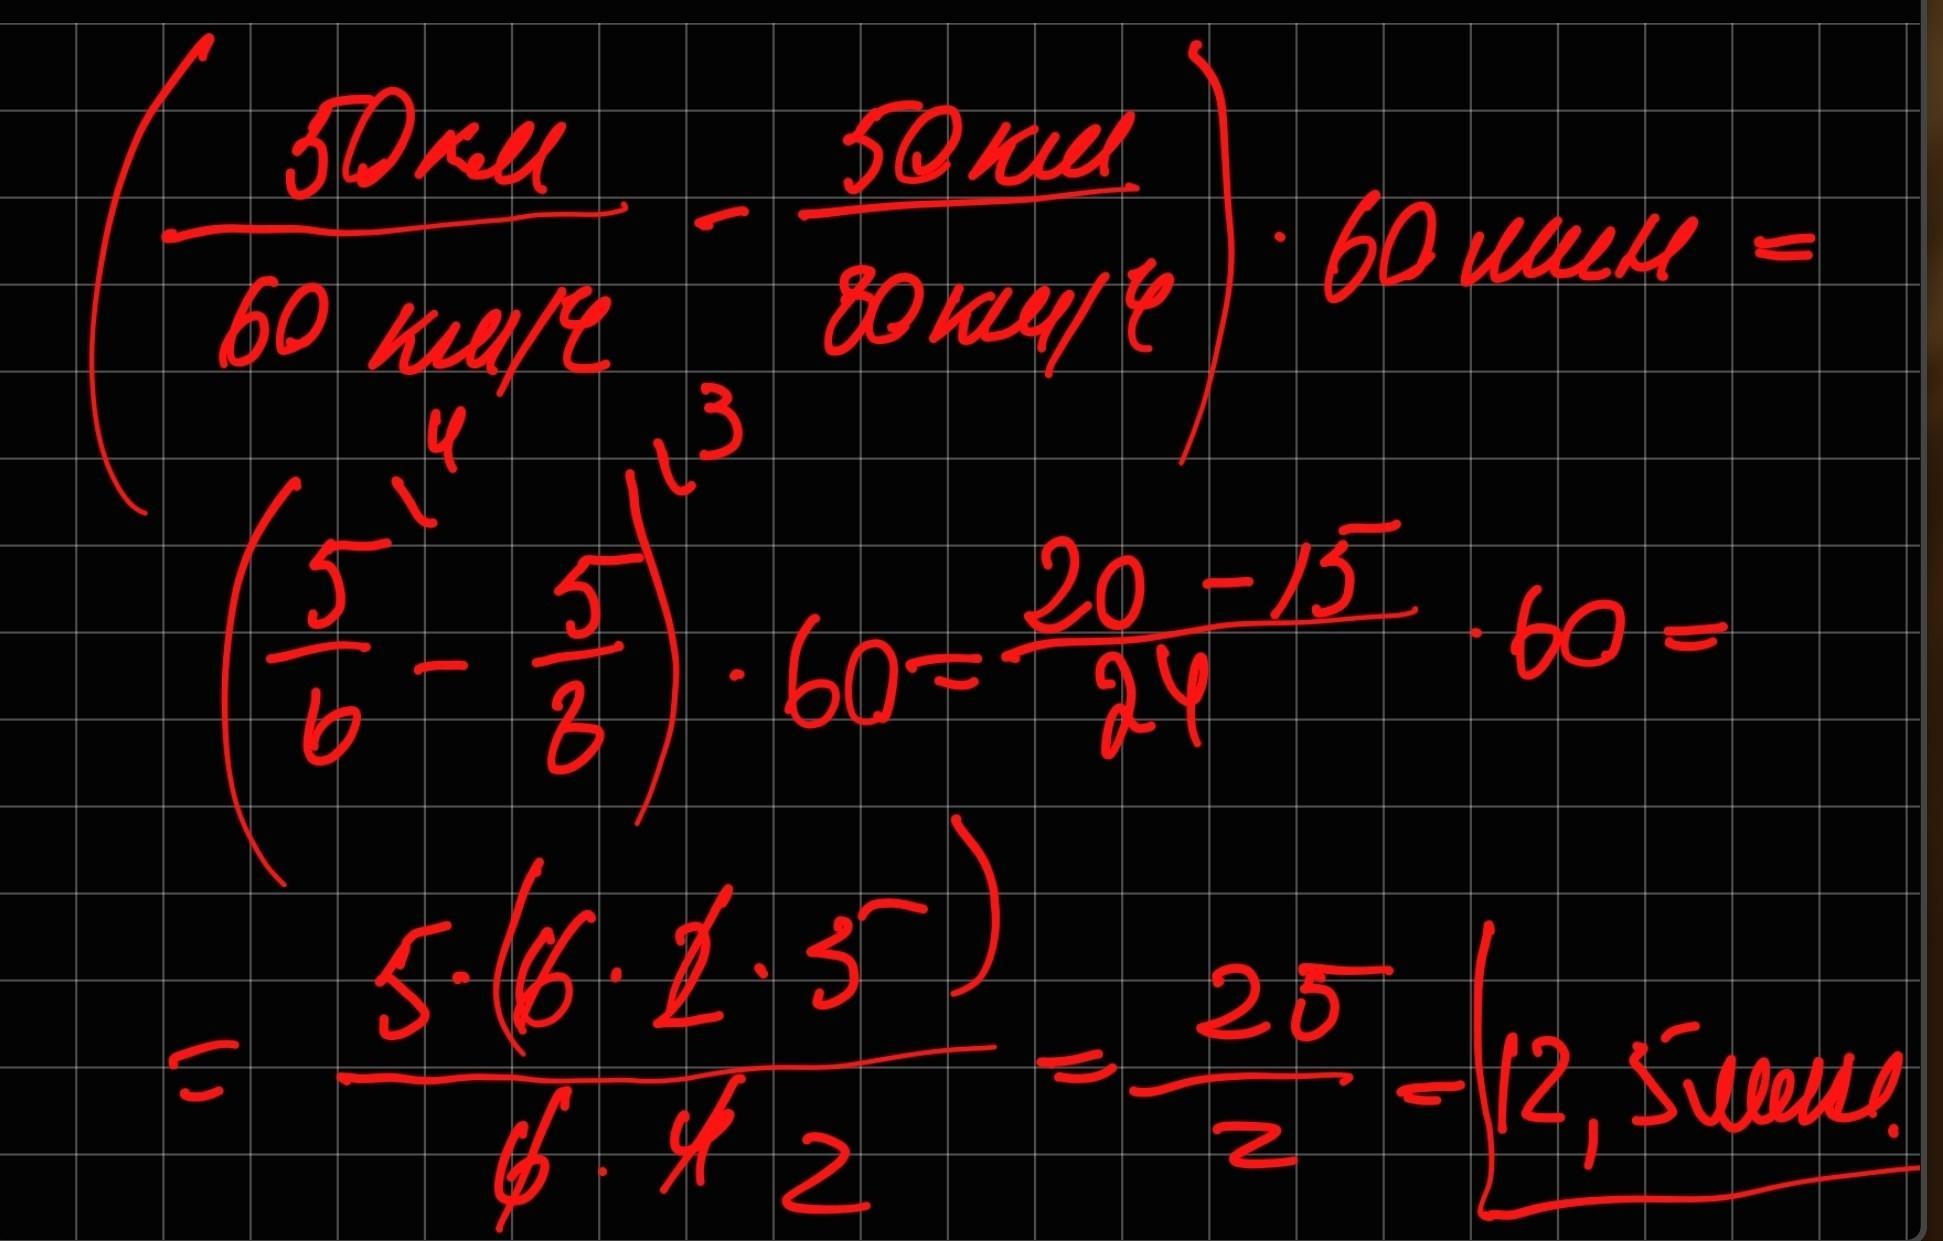 (50 км / 60 км/ч - 50 км / 80 км/ч) · 60 мин =
(5/6 ↘4 - 5/8 ↘3) · 60 = 20 - 15 / 24 · 60 =
= 5 · (6 · 2 · 5) / 6 · 4 2 = 25 / 2 = 12,5 мин.